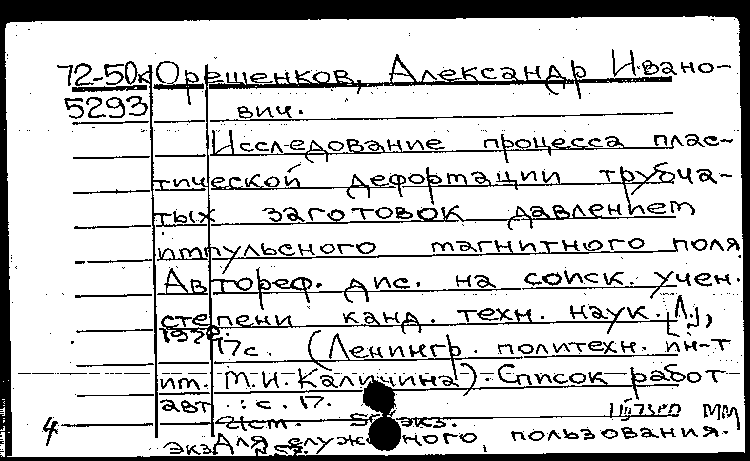 72-50к Орешенков, Александр Ивано-
5293 вич.
Исследование процесса плас-
тической деформации трубча-
тых заготовок давлением
импульсного магнитного поля.
Автореф. дис. на соиск. учен.
степени канд. техн. наук. Л.,
17 с. (Ленингр. политехн. ин-т
им. М.И. Калинина). Список работ
авт.: с. 17.
4 экз.
Для служебного пользования.